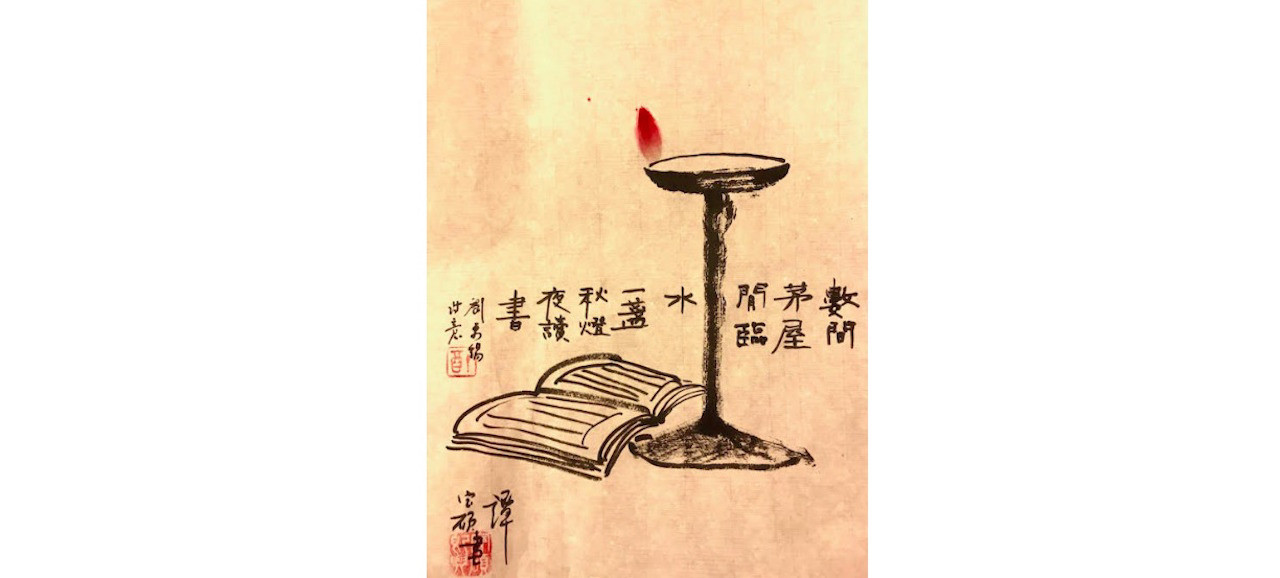 數間
茅屋
閒臨
水
一盞
秋燈
夜讀
書
劉禹錫
詩意
譚
宝硕書